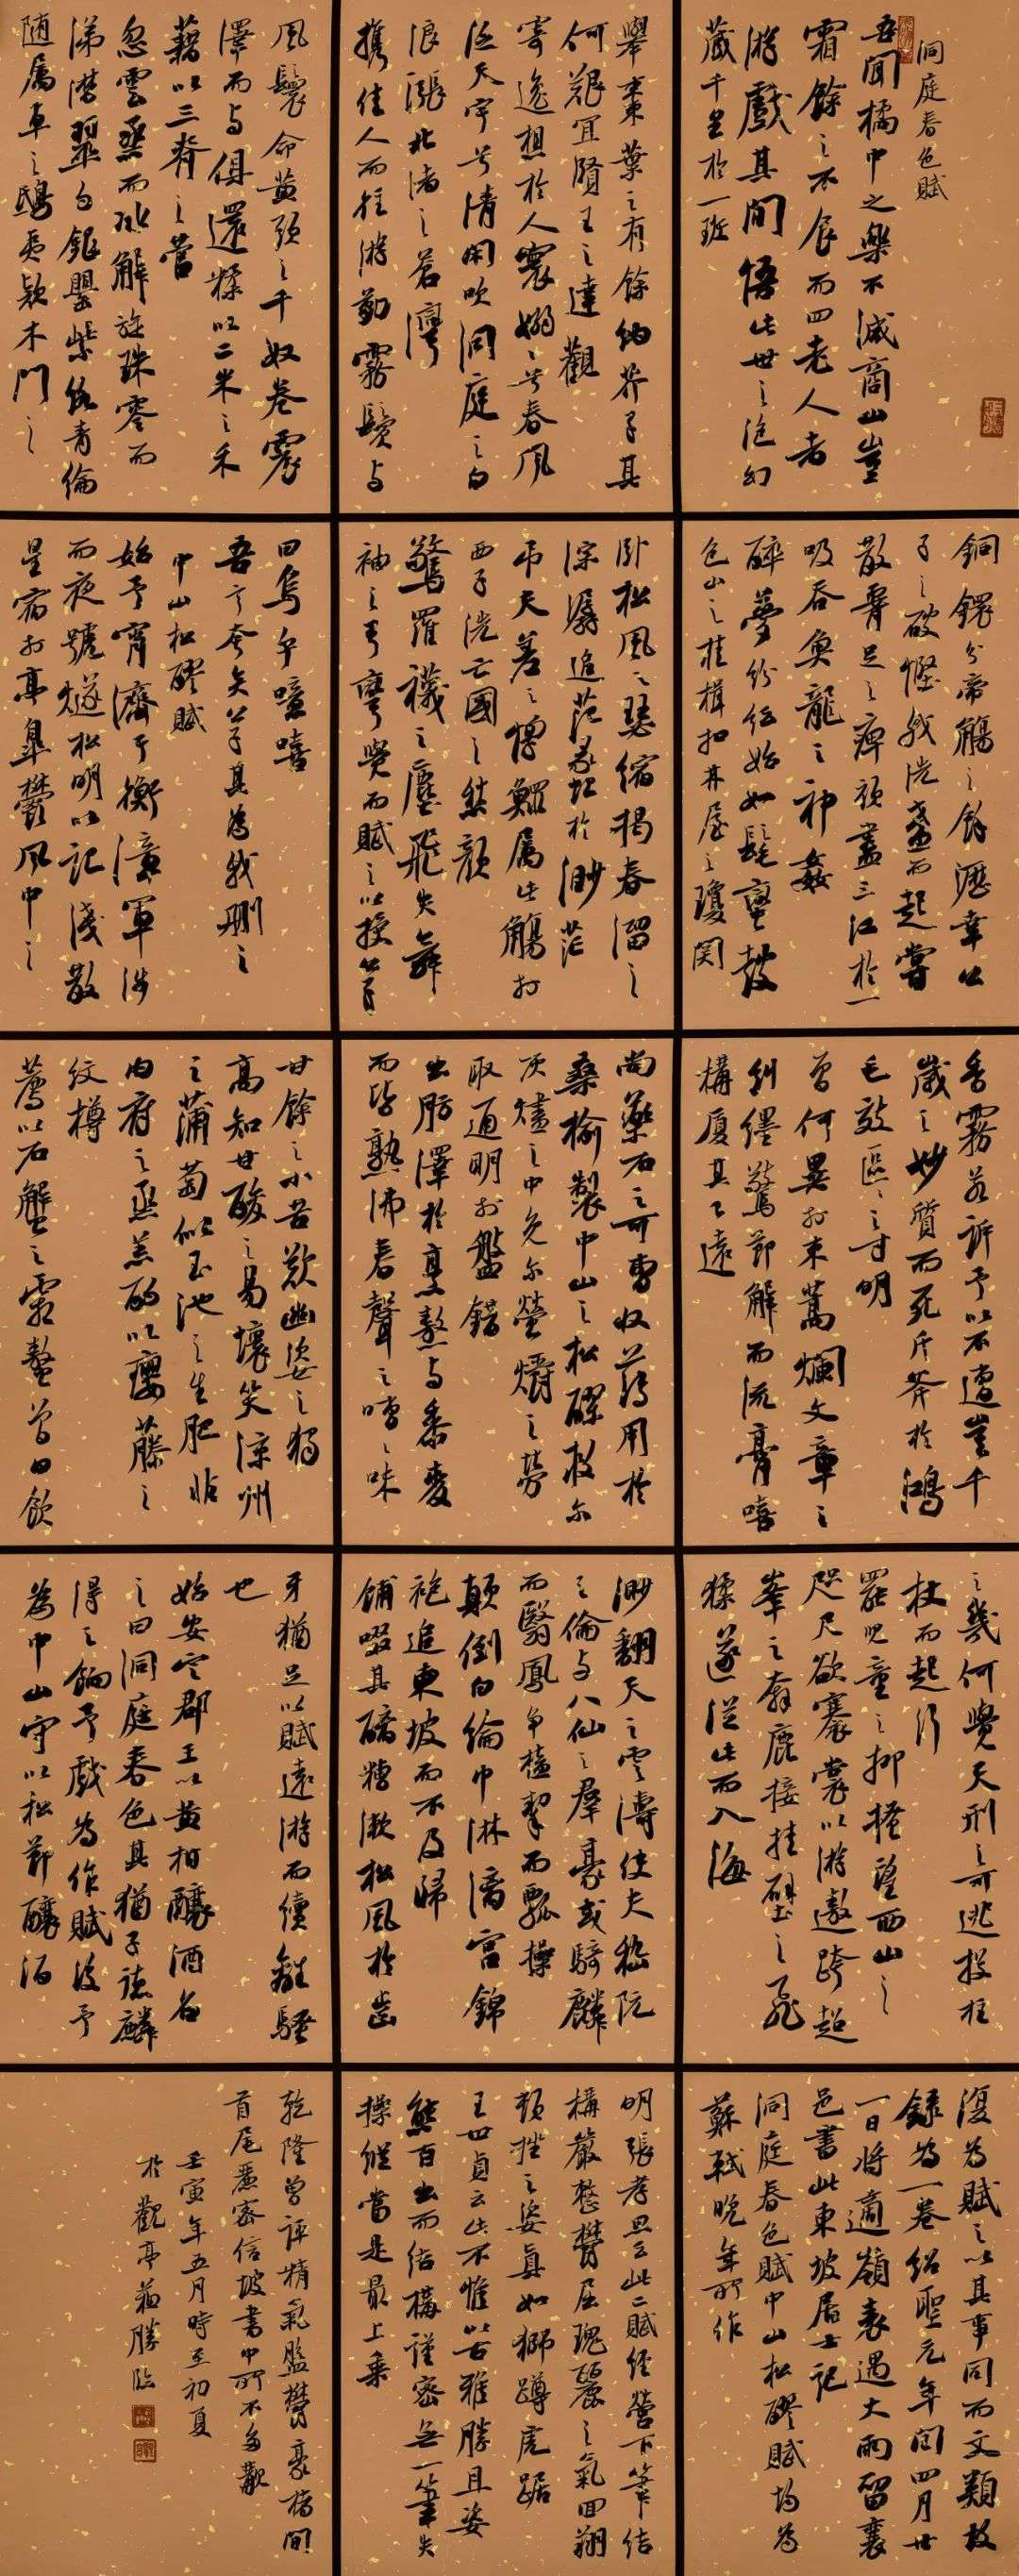 洞庭春色賦
吾聞橘中之樂不減商山豈
霜餘之不食而四老人者
游戲其間悟此世之泡幻
藏千里於一班
舉棗葉之有餘納芥子其
何艱宜賢王之達觀
寄逸想於人寰嫋々兮春風
泛天宇兮清閑吹洞庭之白
浪漲北渚之蒼灣
攜佳人而往游勤霧鬢与
風鬟命黃頭之千奴卷震
澤而与俱還糅以二米之禾
藉以三脊之菅
忽雲蒸而冰解旋珠零而
涕潸翠勺銀罌紫絡青倫
随屬車之鴟夷款木門之
銅鐶分帝觴之餘瀝幸公
子之破慳我洗盞而起嘗
散腰足之痺頑盡三江於一
吸吞魚龍之神姦
醉夢紛紜始如髦蠻鼓
包山之桂楫扣林屋之瓊関
卧松風之瑟縮揭春溜之
淙潺追范蠡於渺茫
吊夫差之惸鰥属此觴於
西子洗亡國之愁顏
驚羅襪之塵飛失舞
袖之弓彎覺而賦之以授公子
曰烏乎噫嘻
吾言夸矣公子其為我刪之
中山松醪賦
始予宵濟于衡漳軍涉
而夜號燧松明以記淺散
星宿於亭皐鬱風中之
香霧若訴予以不遭豈千
歲之妙質而死斤斧於鴻
毛效區々之寸明
曾何異於束蒿爛文章之
糾纆驚節解而流膏嘻
構厦其已遠
尚藥石之可曹收薄用於
桑榆製中山之松醪救尔
灰燼之中免尔螢爝之勞
取通明於盤錯
出肪澤於烹熬与黍麥
而皆熟沸舂聲之嘈々味
甘餘之小苦歎幽姿之獨
高知甘酸之易壞笑凉州
之蒲萄似玉池之生肥非
内府之蒸羔酌以癭藤之
紋樽
薦以石蟹之霜螯曾日飲
之幾何覺天刑之可逃投拄
杖而起行
罷兒童之抑搔望西山之
咫尺欲褰裳以游遨跨超
峯之奔鹿接挂壁之飛
猱遂從此而入海
渺翻天之雲濤使夫嵇阮
之倫与八仙之羣豪或騎麟
而翳鳳争榼挈而瓢操
顛倒白綸巾淋漓宮錦
袍追東坡而不及歸
餔歠其醨糟漱松風於齒
牙猶足以賦遠游而續離騷
也
始安定郡王以黄柑釀酒名
之曰洞庭春色其猶子德麟
得之餉予戲為作賦後予
為中山守以松節釀酒
復為賦之以其事同而文類故
錄為一卷紹聖元年閏四月廿
一日将適嶺表遇大雨留襄
邑書此東坡居士記
洞庭春色賦中山松醪賦均為
蘇軾晚年所作
明張孝思云此二賦經營下筆結
構嚴整鬱屈瑰麗之氣回翔
頓挫之姿真如獅蹲虎踞
王世貞云此不惟以古雅勝且姿
態百出而結構謹密無一筆失
操縱當是最上乘
乾隆曾評精氣盤鬱豪楮間
首尾麗富信坡書中所不多觀
壬寅年五月時至初夏
於觀亭 勝臨